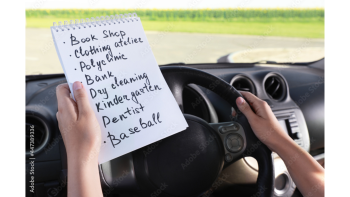 . Book Shop
. Clothing atelier
. Polyclinic
. Bank
. Dry cleaning
. Kindergarten
. Dentist
. Baseball
Adobe Stock | #447389336